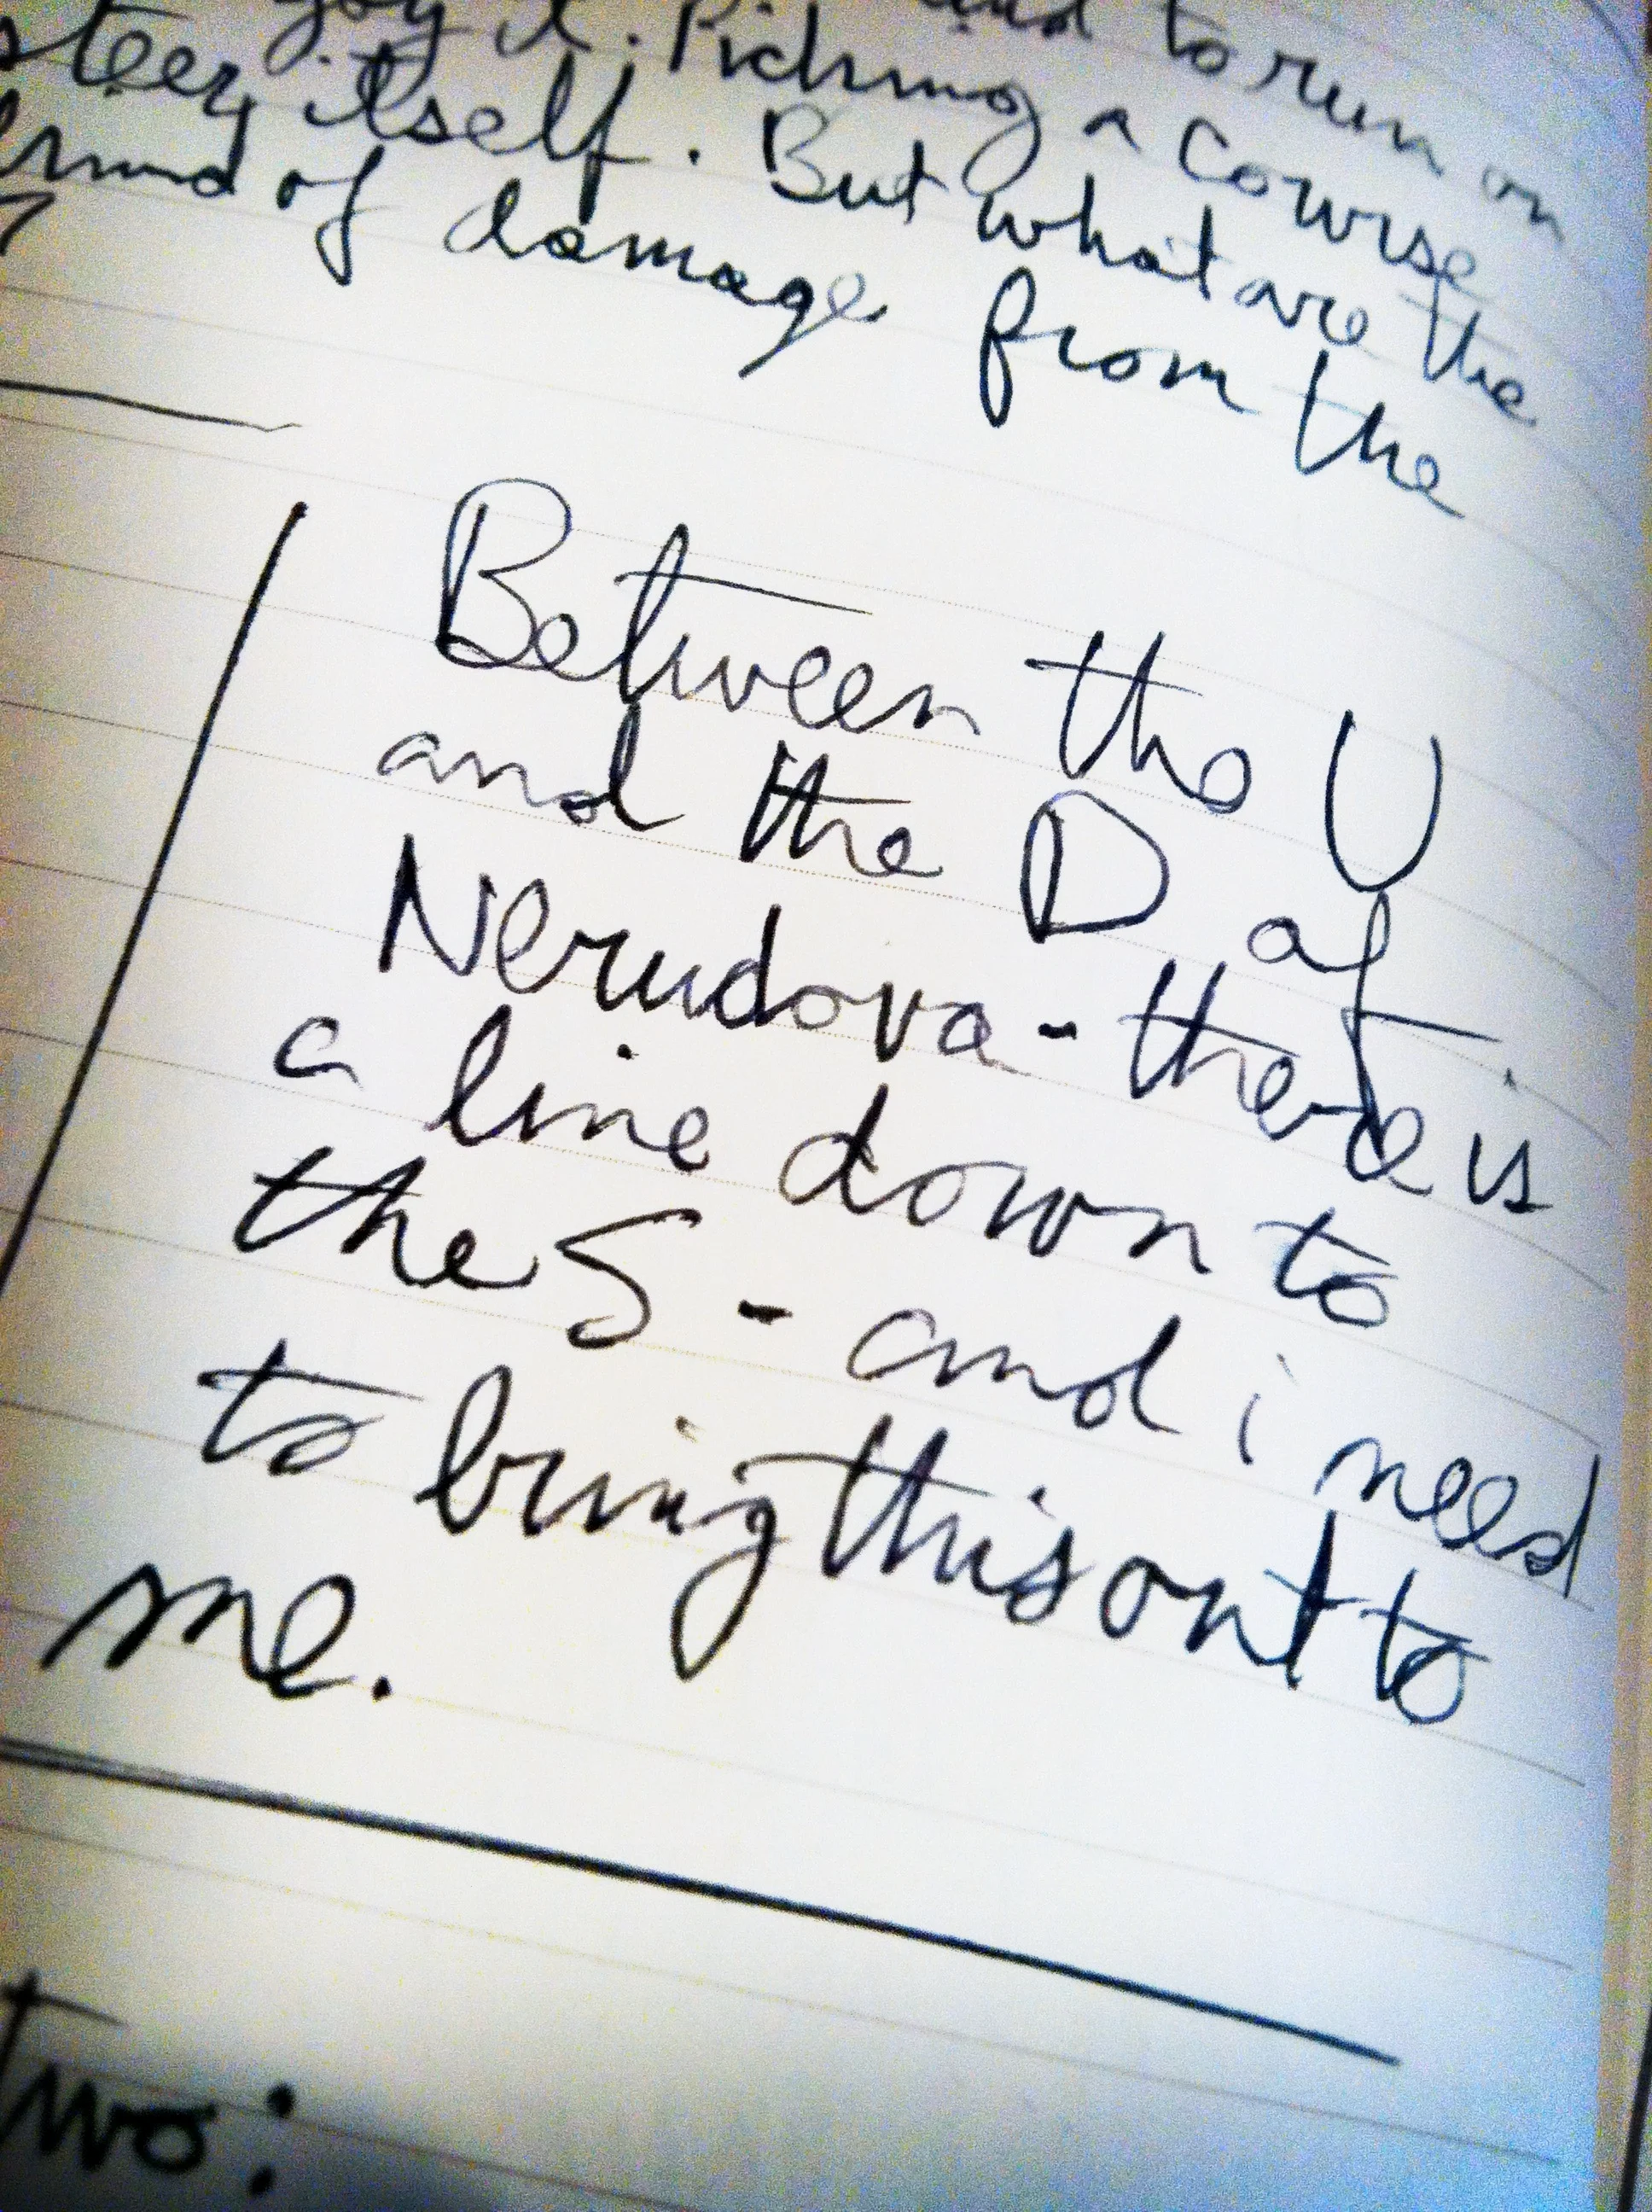 joy it. Picking a course
and to run on
steer itself. But what are the
of damage from the
Between the U
and the D of
Nerudova - there is
a line down to
the S - and i need
to bring this out to
me.
two: